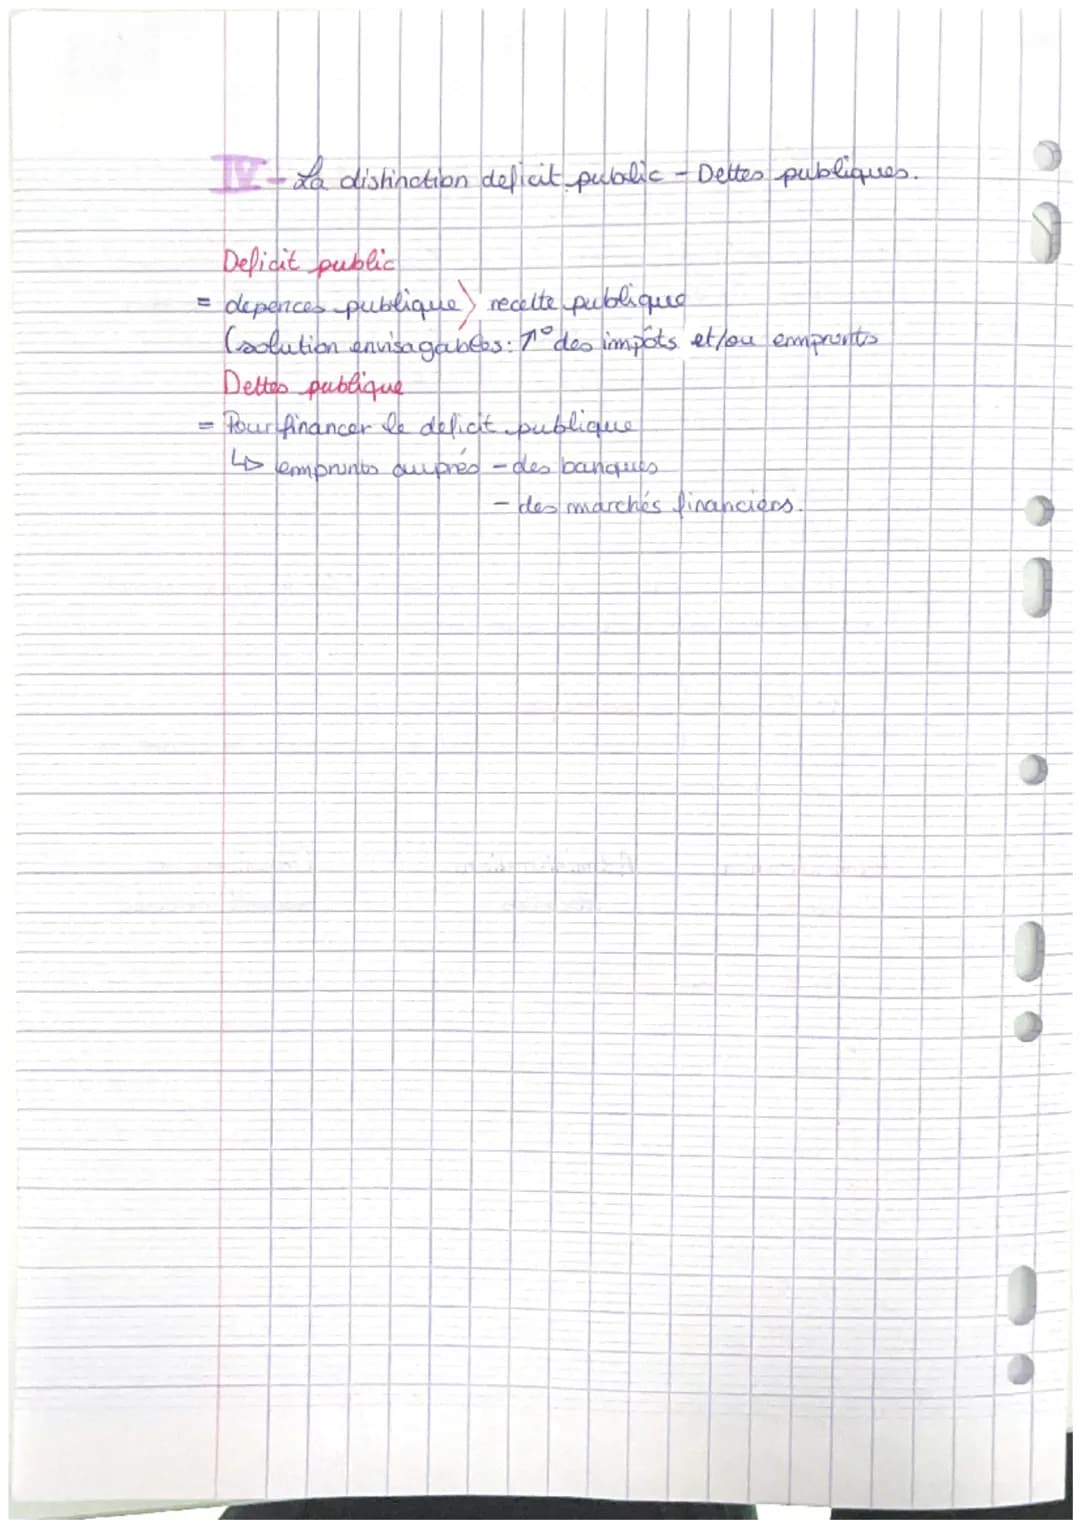 IV - La distinction deficit public - Dettes publiques.
Deficit public
= depences publique > recette publique
(solution envisagables : ↑° des impôts et/ou emprunts
Dettes publique
= Pour financer le deficit publique
↳ emprunts auprés - des banques
- des marchés financiers.